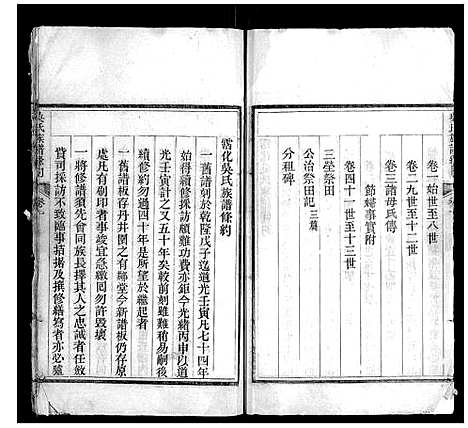 卷一始世至八世
卷二九世至十二世
卷三諸母氏傳
節婦事實附
卷四十一世至十三世
三塋祭田
公治祭田記三篇
分租碑
霑化吳氏族譜條約
一舊譜剏於乾隆戊子迄道光壬寅凡七十四年
始得續修採訪頗難功費亦鉅今光緒丙申以道
光壬寅計之又五十年矣較前刻雖難稍易嗣後
續修約勿過四十年是所望於繼起者
一舊譜板存丹井園之有鄰堂今新譜板仍存原
處凡有刷印者事竣宜急繳囘勿許毀壞
一將修譜須先會同族長擇其人之忠誠者任斂
費司採訪不致臨事掊据及撰修繕寫者亦必遴
吳氏族譜條約
卷九